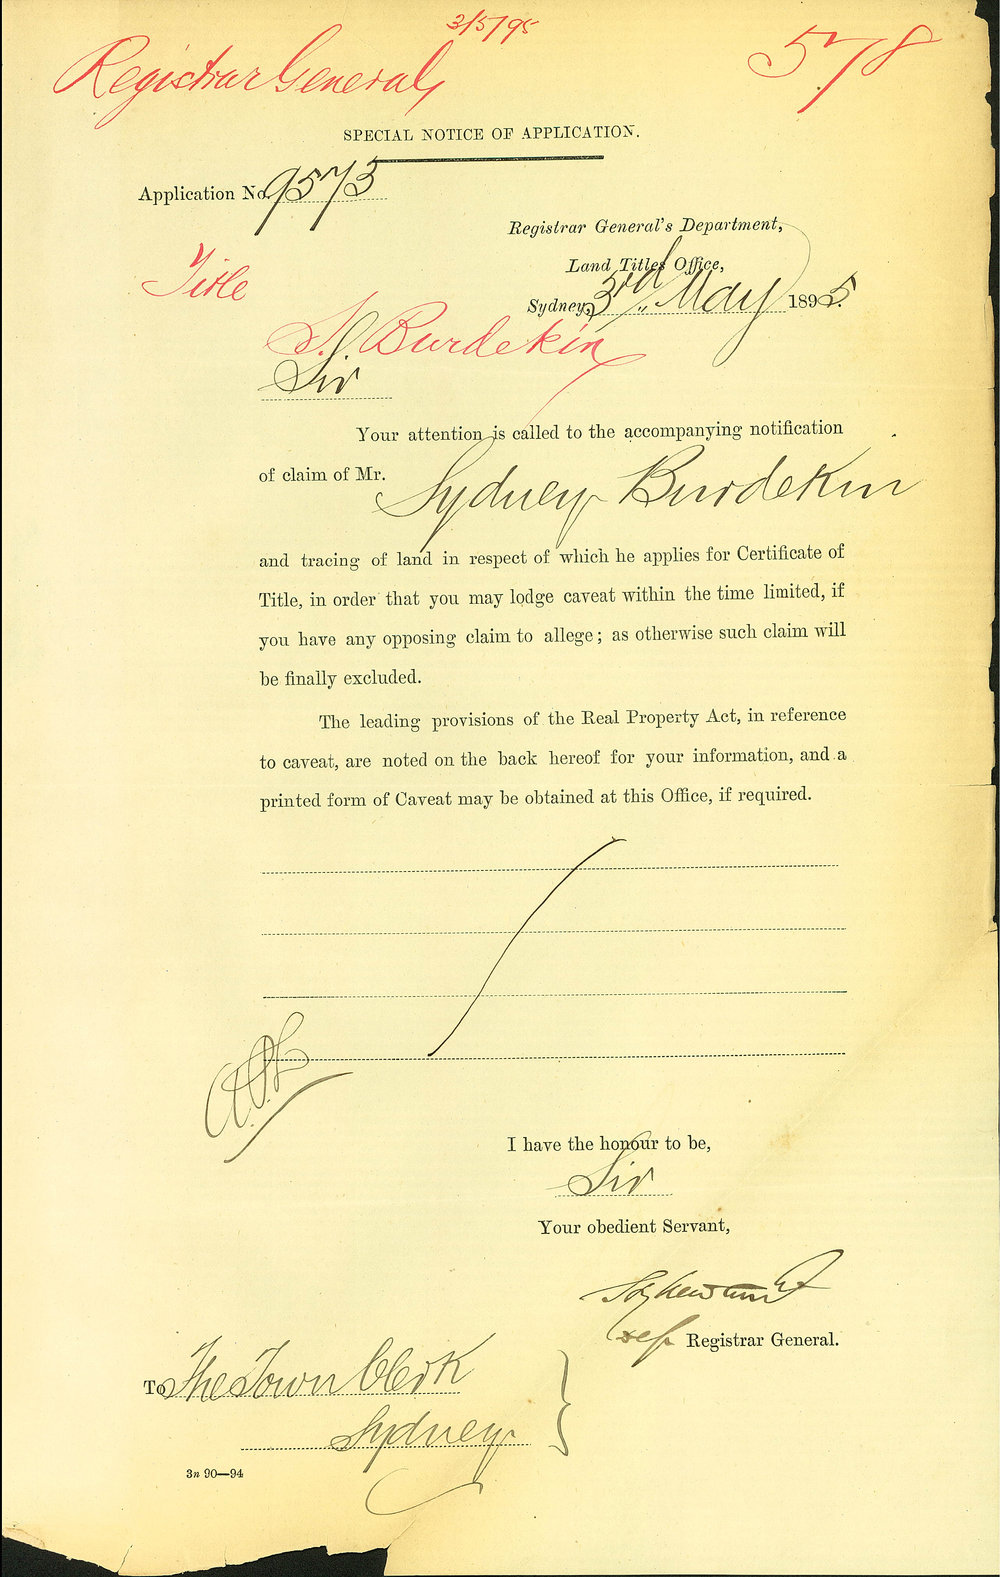 3/5/95
Registrar General,
578
SPECIAL NOTICE OF APPLICATION.
Application No. 9573
Registrar General's Department,
Land Titles Office,
Title
Sydney, 3rd May 1895.
S. Burdekin
Sir
Your attention is called to the accompanying notification
of claim of Mr. Sydney Burdekin
and tracing of land in respect of which he applies for Certificate of
Title, in order that you may lodge caveat within the time limited, if
you have any opposing claim to allege; as otherwise such claim will
be finally excluded.
The leading provisions of the Real Property Act, in reference
to caveat, are noted on the back hereof for your information, and a
printed form of Caveat may be obtained at this Office, if required.
I have the honour to be,
Sir
Your obedient Servant,
Registrar General.
To The Town Clerk
Sydney
3n 90—94